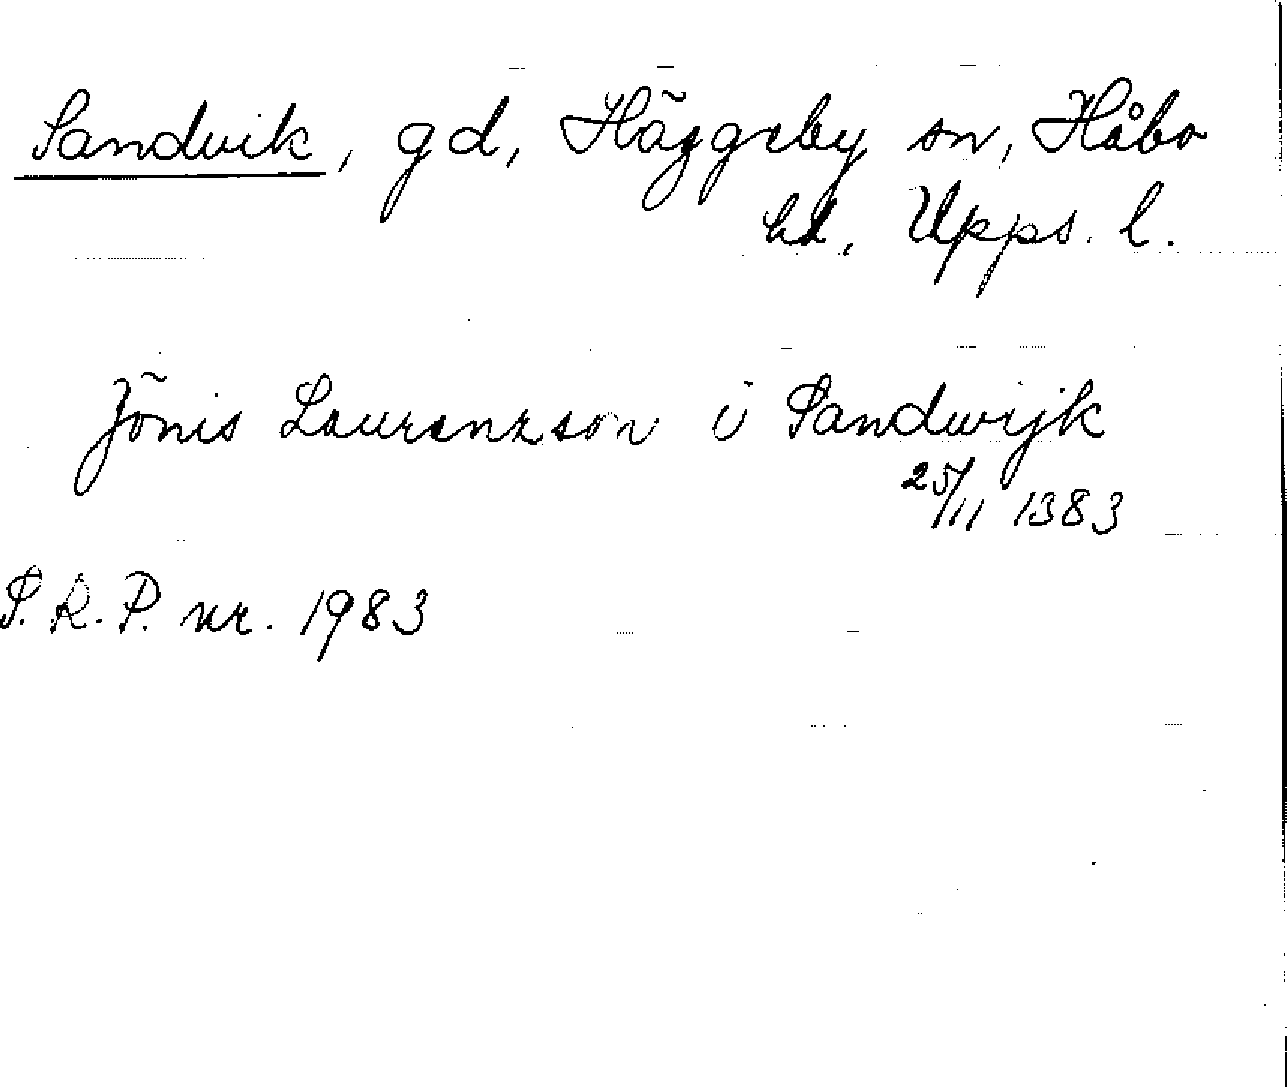 Sandvik, gd, Häggeby sn, Håbo
hd, Upps. l.
Jönis Laurenzson i Sandwijk
25/11 1383
S.R.P. nr. 1983